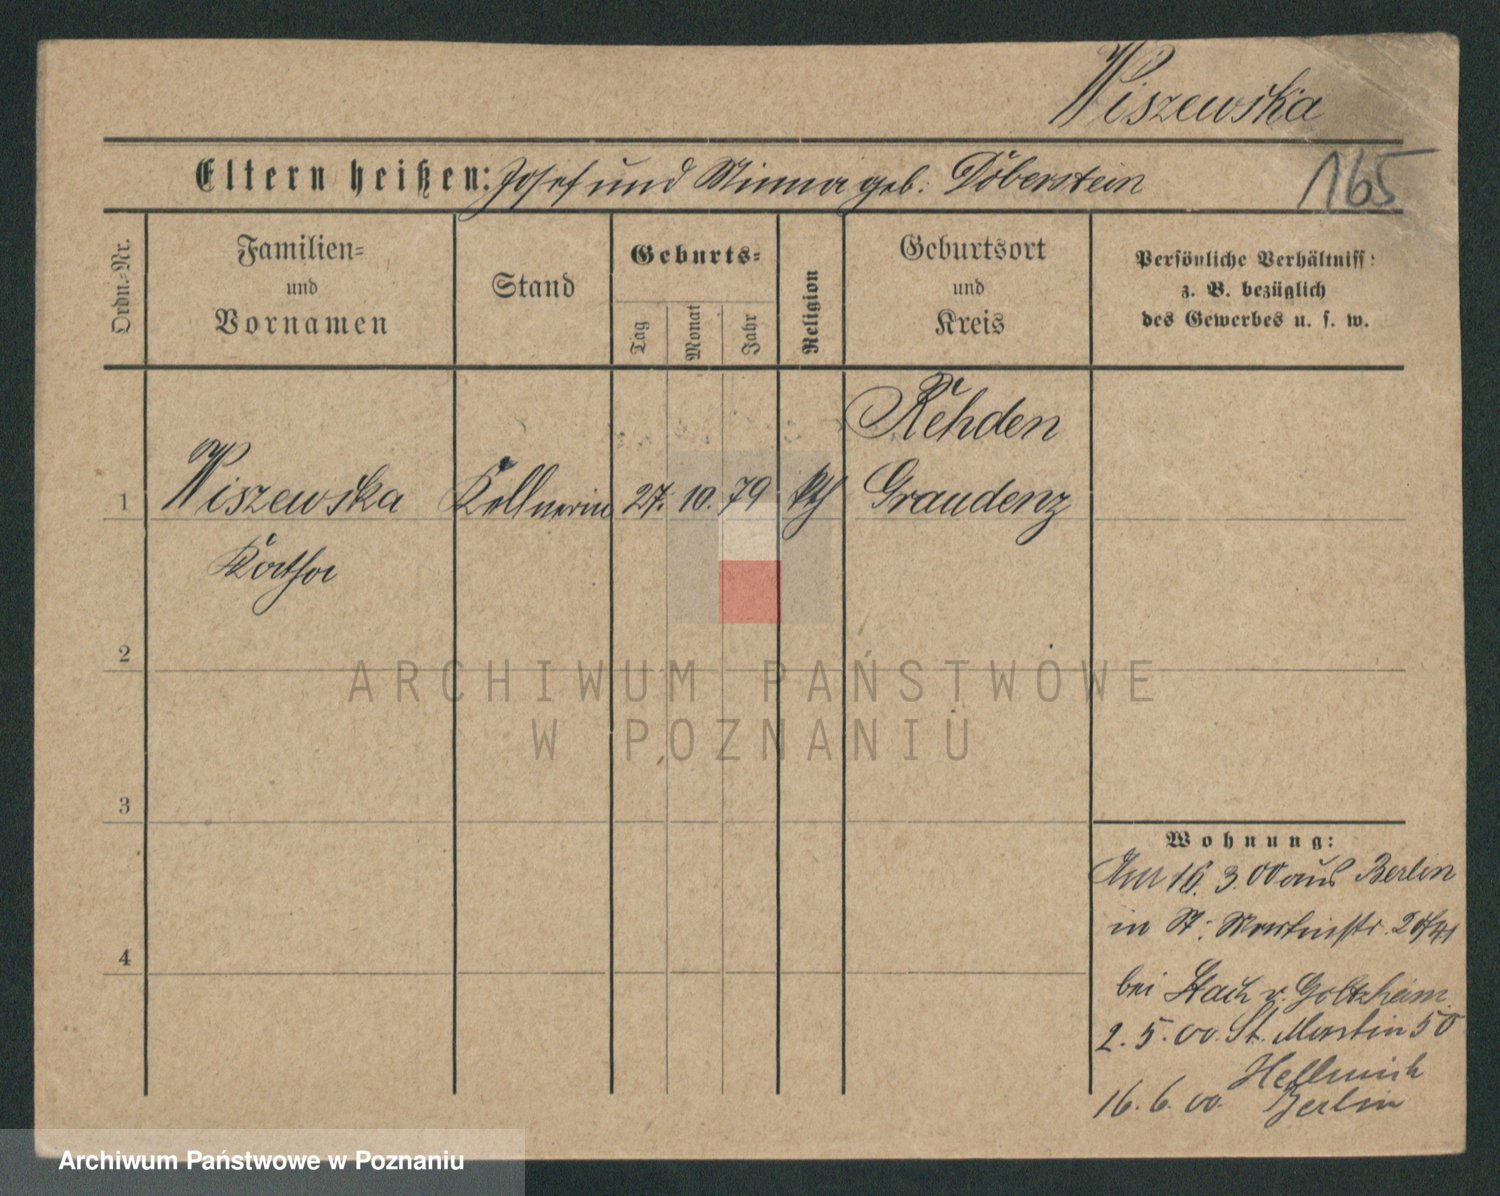 Wiszewska
Eltern heißen: Josef und Minna geb. Döberstein
165
Ordn.-Nr.
Familien-
und
Vornamen
Stand
Geburts-
Tag
Monat
Jahr
Religion
Geburtsort
und
Kreis
Persönliche Verhältnisse
z. B. bezüglich
des Gewerbes u. s. w.
Rehden
1 Wiszewska Kellnerin 27. 10. 79 kth Graudenz
2
3
4
Wohnung:
16. 3. 00 aus Berlin
in St. Martinstr.
bei Stach v. Goltzheim
2. 5. 00. St. Martin 50
Hellmich
16. 6. 00. Berlin
ARCHIWUM PAŃSTWOWE
W POZNANIU
Archiwum Państwowe w Poznaniu